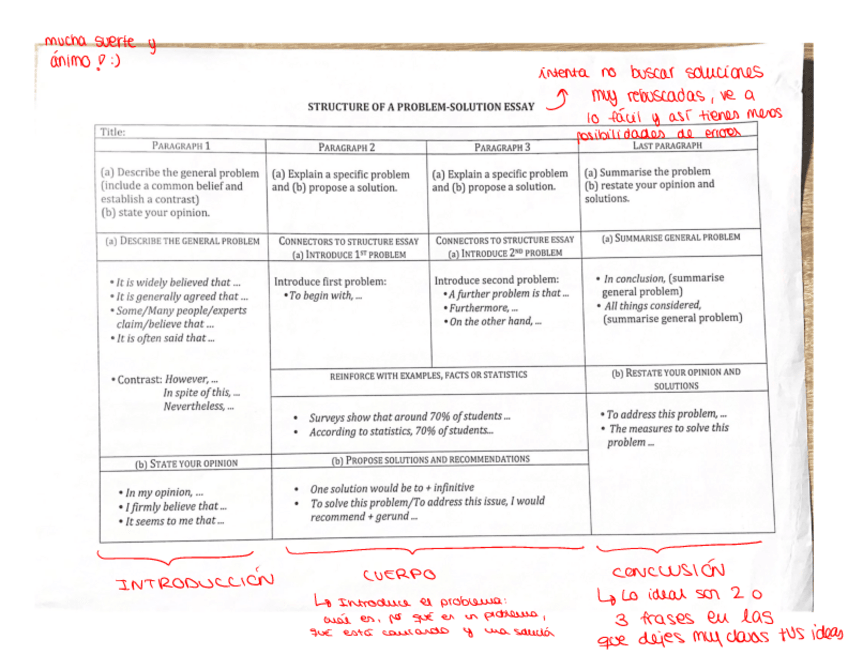 mucha suerte y
ánimo! :)
intenta no buscar soluciones
muy rebuscadas, ve a
lo fácil y así tienes menos
posibilidades de errores
STRUCTURE OF A PROBLEM-SOLUTION ESSAY
Title:
PARAGRAPH 1
PARAGRAPH 2
PARAGRAPH 3
LAST PARAGRAPH
(a) Describe the general problem
(include a common belief and
establish a contrast)
(b) state your opinion.
(a) Explain a specific problem
and (b) propose a solution.
(a) Explain a specific problem
and (b) propose a solution.
(a) Summarise the problem
(b) restate your opinion and
solutions.
(a) DESCRIBE THE GENERAL PROBLEM
CONNECTORS TO STRUCTURE ESSAY
(a) INTRODUCE 1ST PROBLEM
CONNECTORS TO STRUCTURE ESSAY
(a) INTRODUCE 2ND PROBLEM
(a) SUMMARISE GENERAL PROBLEM
• It is widely believed that ...
• It is generally agreed that ...
• Some/Many people/experts
claim/believe that ...
• It is often said that ...
• Contrast: However, ...
In spite of this, ...
Nevertheless, ...
Introduce first problem:
• To begin with, ...
Introduce second problem:
• A further problem is that ...
• Furthermore, ...
• On the other hand, ...
• In conclusion, (summarise
general problem)
• All things considered,
(summarise general problem)
REINFORCE WITH EXAMPLES, FACTS OR STATISTICS
• Surveys show that around 70% of students ...
• According to statistics, 70% of students...
(b) RESTATE YOUR OPINION AND
SOLUTIONS
• To address this problem, ...
• The measures to solve this
problem ...
(b) STATE YOUR OPINION
• In my opinion, ...
• I firmly believe that ...
• It seems to me that ...
(b) PROPOSE SOLUTIONS AND RECOMMENDATIONS
• One solution would be to + infinitive
• To solve this problem/To address this issue, I would
recommend + gerund ...
INTRODUCCIÓN
CUERPO
↳ Introduce el problema:
cuál es, por qué es un problema,
qué está causando y una solución
CONCLUSIÓN
↳ Lo ideal son 2 o
3 frases en las
que dejes muy claras tus ideas